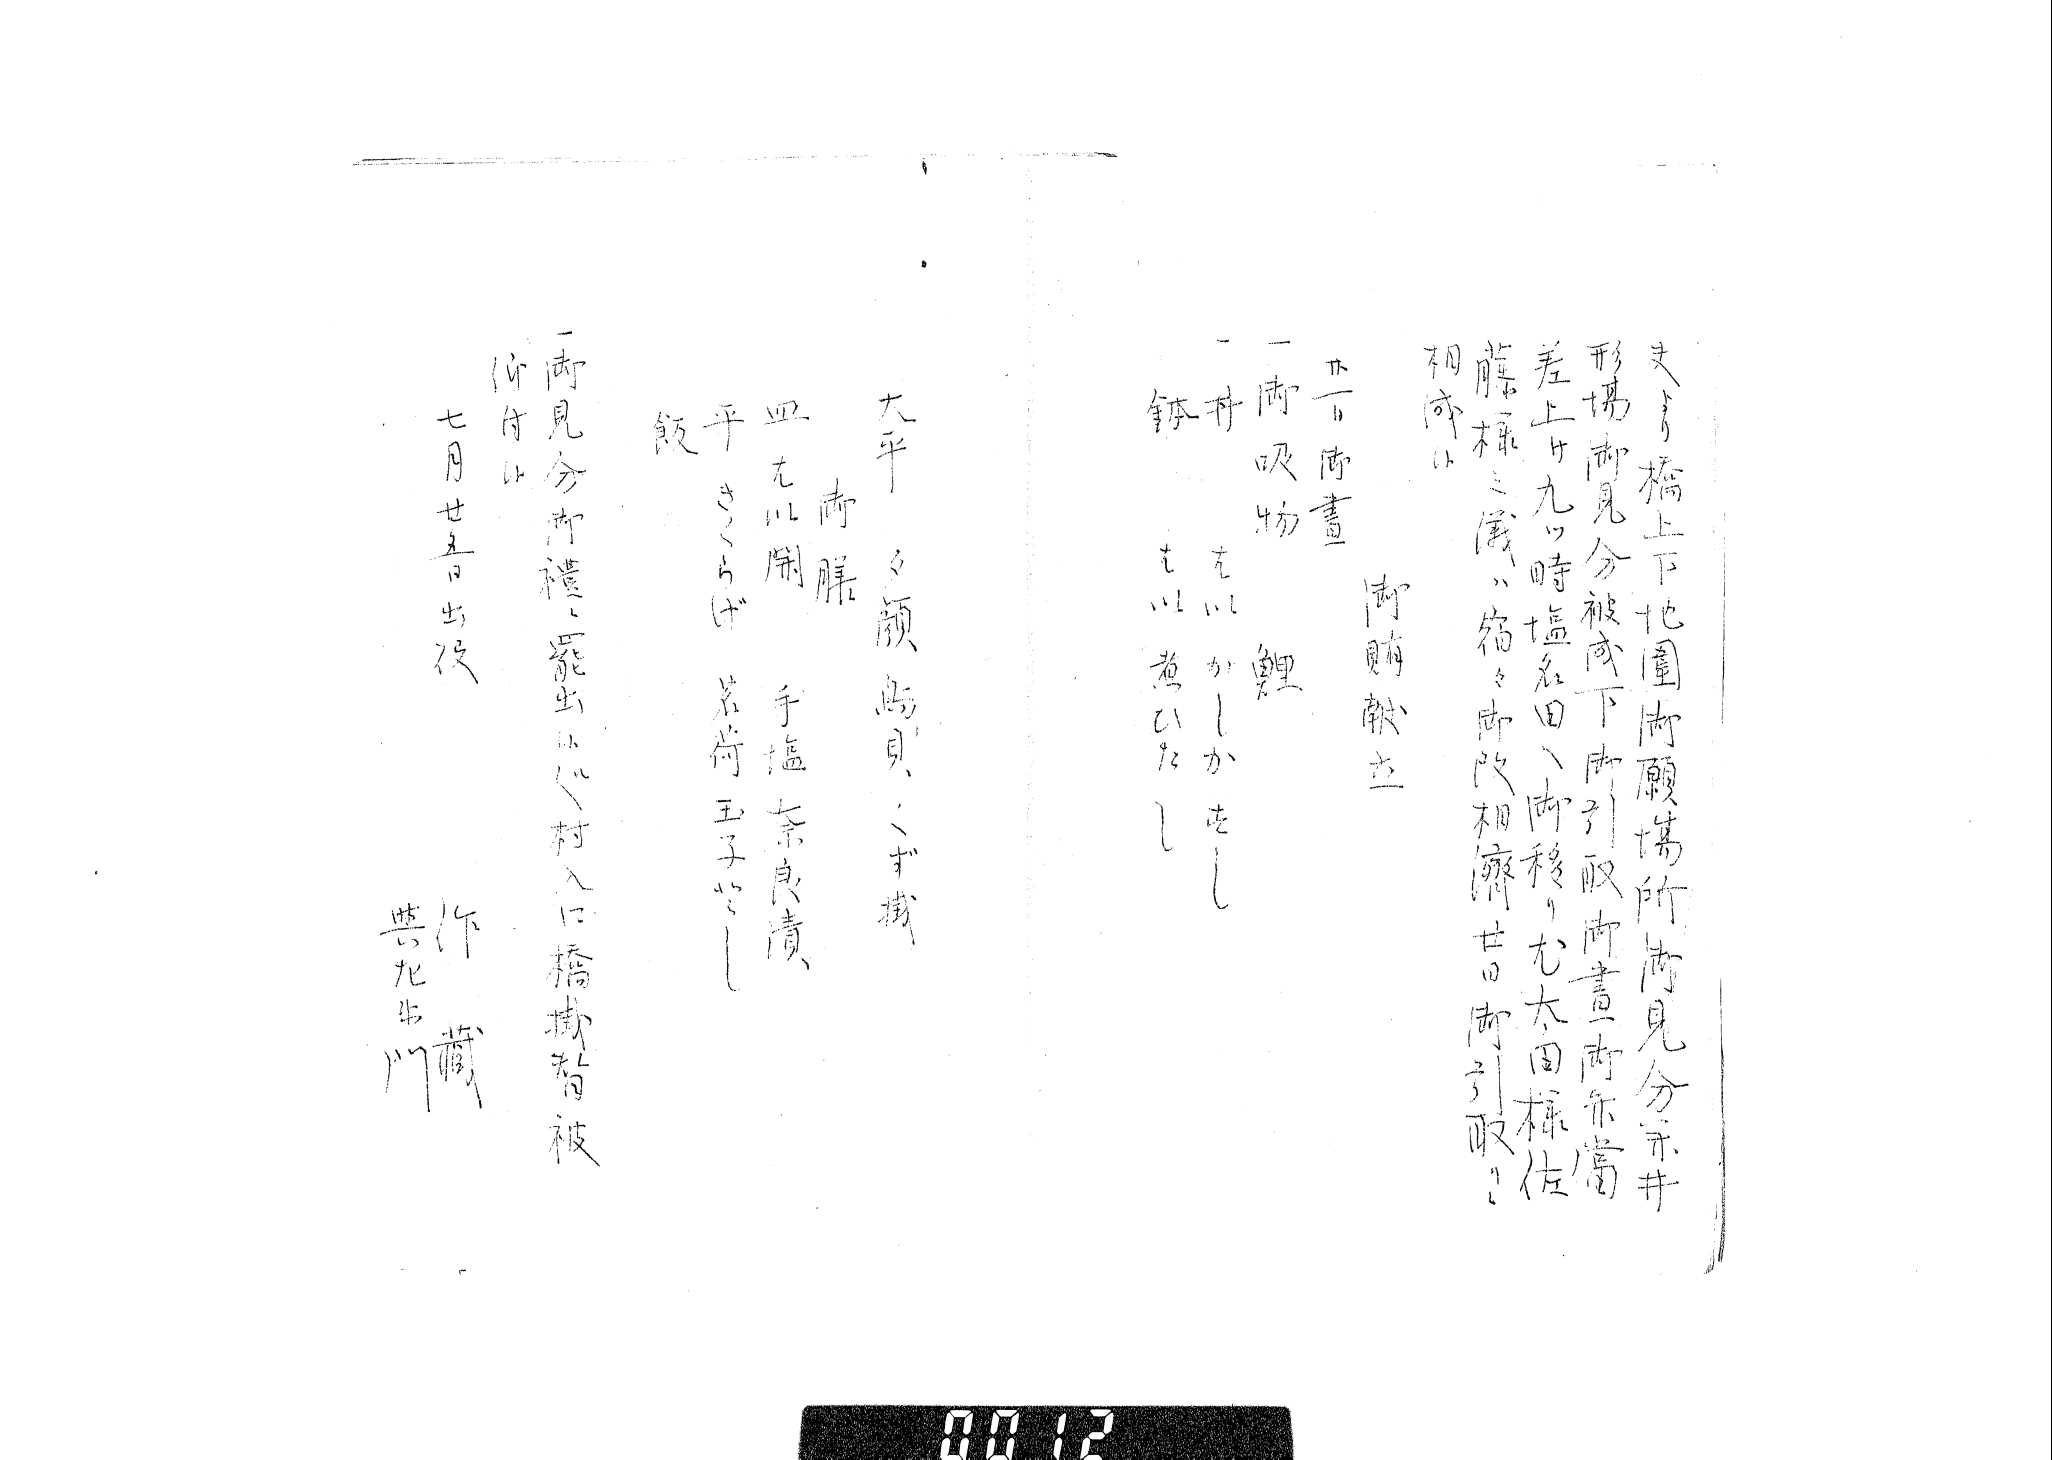 夫より橋上下地圍御願場所御見分并井
形場御見分被成下御引取御晝御弁當
差上ケ九ツ時塩名田へ御移り尤太田様佐
藤様之儀ハ宿々御改相濟廿日御引取りニ
相成候
御賄献立
廿一日御晝
一御吸物 鯉
一丼 を以 かしか
鉢 を以 煮ひたし
大平 夕顔 くず掛
御膳
皿 を以開 手塩 奈良漬
平 きくらげ 茗荷 玉子とし
飯
一御見分御禮ニ罷出候 村入に橋掛 被
仰付候
七月廿五日出役
作藏
門
0012